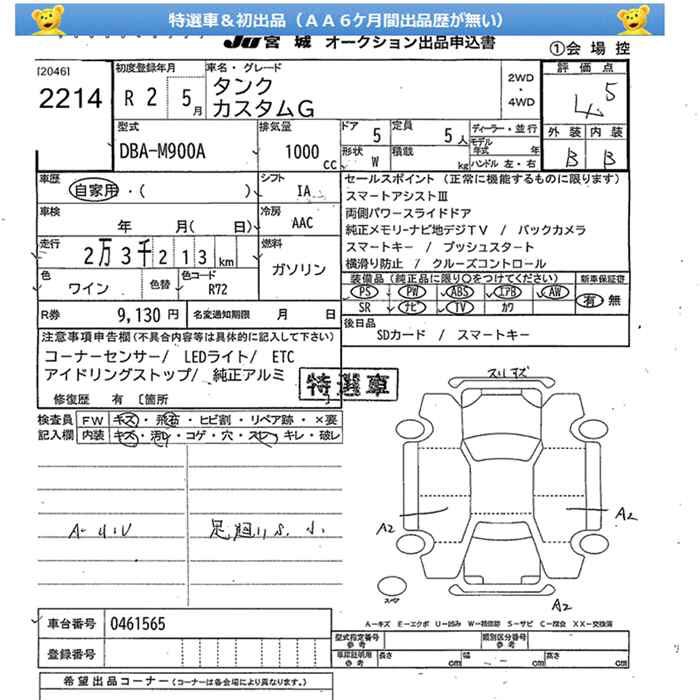 特選車＆初出品（ＡＡ６ケ月間出品歴が無い）
JU宮城 オークション出品申込書
①会場控
[2046]
2214
初度登録年月
R 2 5月
車名・グレード
タンク
カスタムG
2WD
・
4WD
評価点
4.5
外装 内装
B B
型式
DBA-M900A
排気量
1000 cc
ドア 5
定員 5人
ディーラー・並行
モデル年式 年
形状 W
積載 kg
ハンドル 左・右
車歴
自家用・( )
シフト
IA
車検
年 月( 日)
冷房
AAC
走行
2万3千213km
燃料
ガソリン
色
ワイン
色替
色コード
R72
R券 9,130 円
名変通知期限 月 日
セールスポイント（正常に機能するものに限ります）
スマートアシストⅢ
両側パワースライドドア
純正メモリーナビ地デジTV / バックカメラ
スマートキー / プッシュスタート
横滑り防止 / クルーズコントロール
装備品（純正品に限り○をつけてください）
新車保証書
PS PW ABS エアB AW
有・無
SR ナビ TV カワ
後日品
SDカード / スマートキー
注意事項申告欄（不具合内容等は具体的に記入して下さい）
コーナーセンサー/ LEDライト/ ETC
アイドリングストップ/ 純正アルミ
特選車
修復歴 有 〔箇所 〕
検査員記入欄
FW キズ・飛石・ヒビ割・リペア跡・×要
内装 キズ・汚レ・コゲ・穴・スレ・キレ・破レ
スリキズ
A2
A2
A2
スペア
A－キズ E－エクボ U－凹み W－補修跡 S－サビ C－腐食 XX－交換済
車台番号 0461565
登録番号
型式指定番号 参考
類別区分番号 参考
車庫証明用 参考
長さ cm
幅 cm
高さ cm
希望出品コーナー（コーナーは各会場により異なります。）